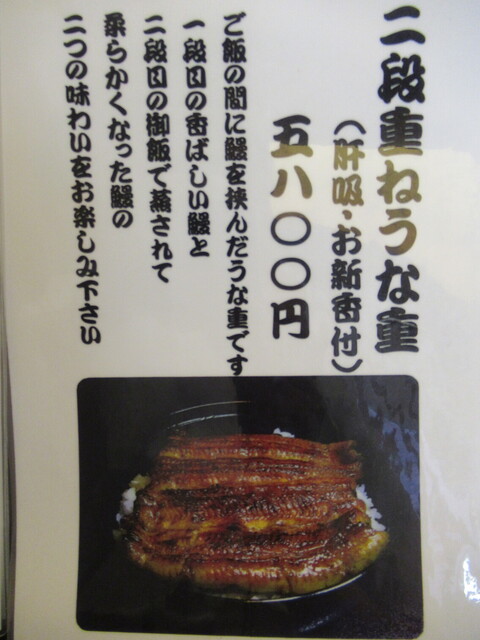 二段重ねうな重
（肝吸・お新香付）
五八〇〇円
ご飯の間に鰻を挟んだうな重です
一段目の香ばしい鰻と
二段目の御飯で蒸されて
柔らかくなった鰻の
二つの味わいをお楽しみ下さい